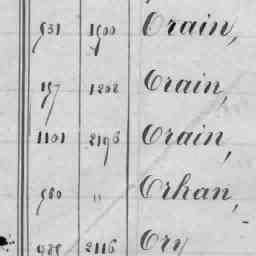 931 1900 Orain,
197 1202 Orain,
1101 2196 Orain,
980 " Orhan,
2116 Ory